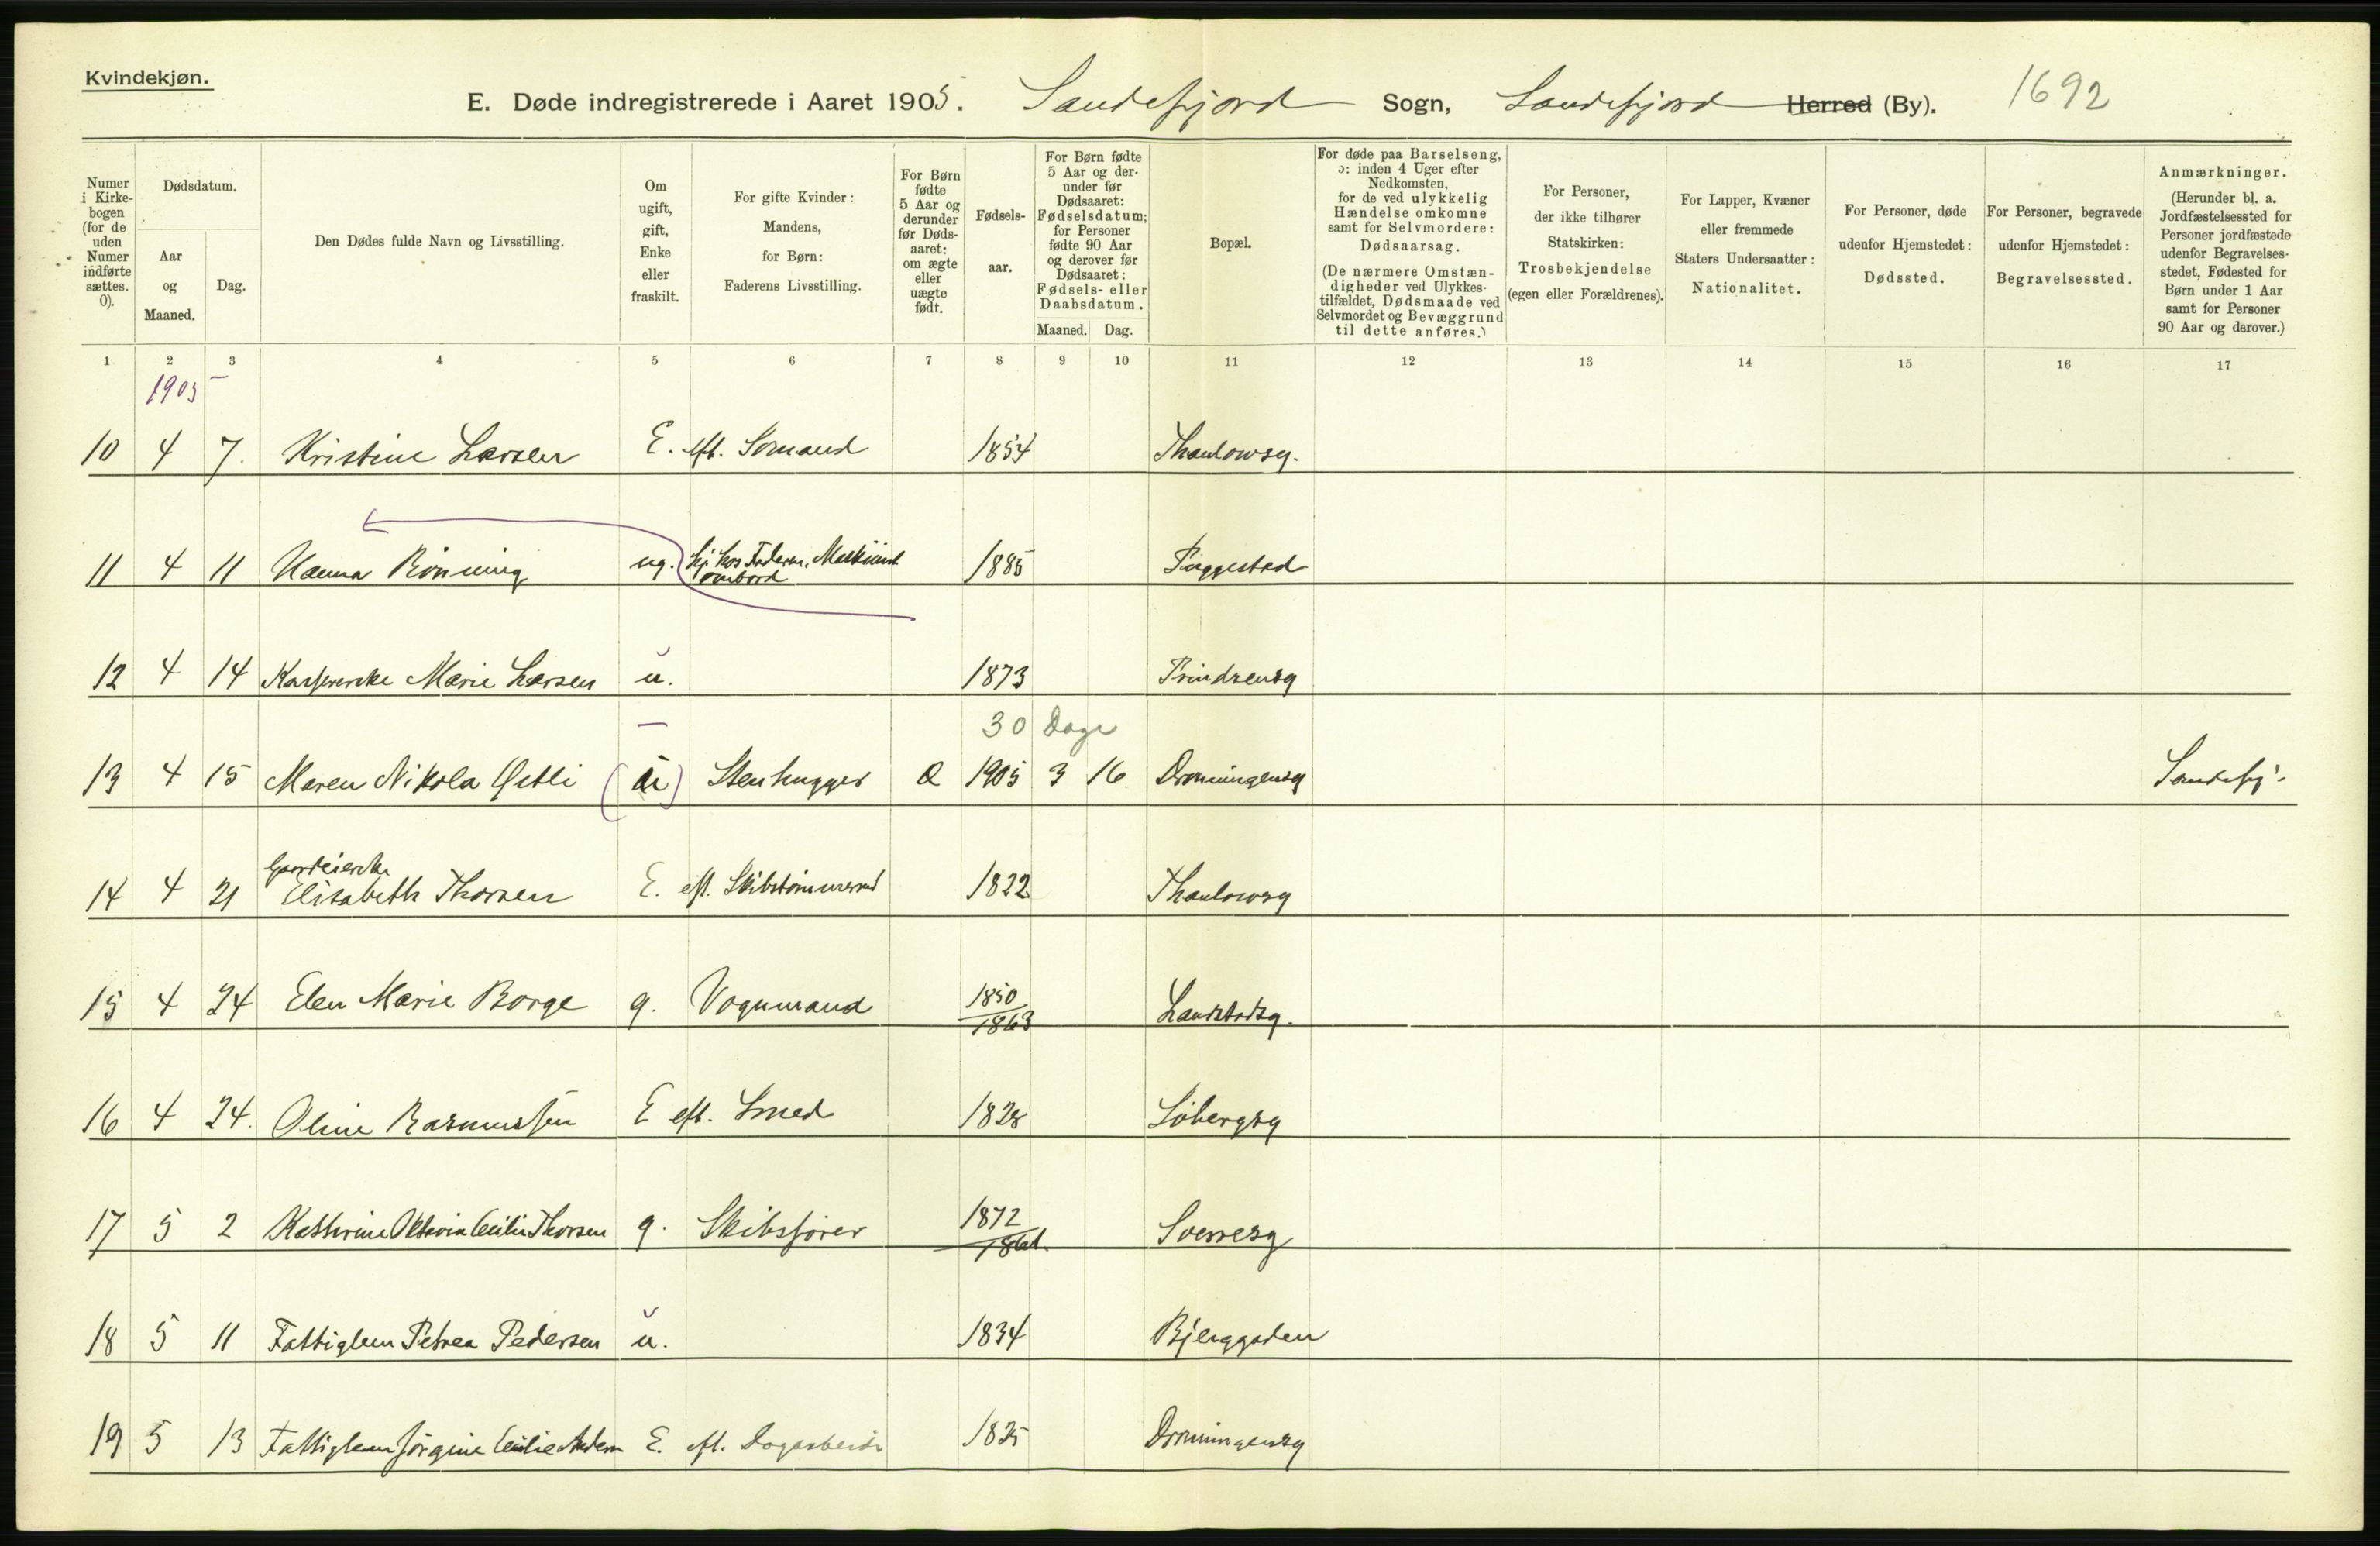 Kvindekjøn.
E. Døde indregistrerede i Aaret 1905. Sandefjord Sogn, Sandefjord Herred (By). 1692
Numer i Kirkebogen (for de uden Numer indførte sættes. 0).
Dødsdatum.
Aar og Maaned.
Dag.
Den Dødes fulde Navn og Livsstilling.
Om ugift, gift, Enke eller fraskilt.
For gifte Kvinder: Mandens, for Børn: Faderens Livsstilling.
For Børn fødte 5 Aar og derunder før Dødsaaret: om ægte eller uægte født.
Fødselsaar.
For Børn fødte 5 Aar og derunder før Dødsaaret: Fødselsdatum; for Personer fødte 90 Aar og derover før Dødsaaret: Fødsels- eller Daabsdatum.
Maaned. Dag.
Bopæl.
For døde paa Barselseng, ɔ: inden 4 Uger efter Nedkomsten, for de ved ulykkelig Hændelse omkomne samt for Selvmordere: Dødsaarsag. (De nærmere Omstændigheder ved Ulykkestilfældet, Dødsmaade ved Selvmordet og Bevæggrund til dette anføres.)
For Personer, der ikke tilhører Statskirken: Trosbekjendelse (egen eller Forældrenes).
For Lapper, Kvæner eller fremmede Staters Undersaatter: Nationalitet.
For Personer, døde udenfor Hjemstedet: Dødssted.
For Personer, begravede udenfor Hjemstedet: Begravelsessted.
Anmærkninger. (Herunder bl. a. Jordfæstelsessted for Personer jordfæstede udenfor Begravelsesstedet, Fødested for Børn under 1 Aar samt for Personer 90 Aar og derover.)
1 2 3 4 5 6 7 8 9 10 11 12 13 14 15 16 17
1905
10 4 7. Kristine Larsen E. eft. Sömand 1854 Thaulowsg.
11 4 11 Hanna Rönning ug. hj. hos Faderen, Maskinist ombord 1885 Puggestad
12 4 14 Marie Larsen u. 1873 Prindsensg
30 Dage
13 4 15 Maren Nikola Østli (u) Stenhugger 1905 3 16 Dronningensg Sandefj.
Gaardeierske
14 4 21 Elisabeth Thorsen E. eft. Skibstömmermd 1822 Thaulowsg
15 4 24 Elen Marie Borge g. Vognmand 1850 1863 Landstadsg.
16 4 24. Oline Rasmussen E eft. Smed 1828 Löbergsg
17 5 2 Kathrine Oktavia Cecilie Thorsen g. Skibsförer 1872 Sverresg
18 5 11 Fattiglem Petrea Pedersen u. 1834 Bjerggaden
19 5 13 Fattiglem Jörgine Cecilie E. eft. Dagarbeider 1825 Dronningensg